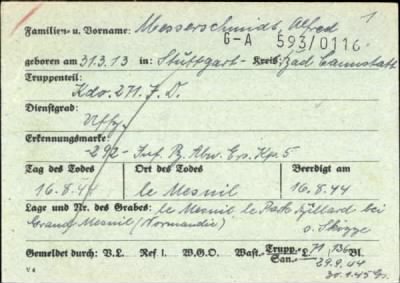 1
Familien- u. Vorname: Messerschmidt, Alfred
G-A 593/0116
geboren am 31.3.13 in: Stuttgart- Kreis: Bad Cannstatt
Truppenteil:
Kdo. 271. J. D.
Dienstgrad:
Uffz.
Erkennungsmarke:
-292- Inf. Pz. Abw. Ers. Kp. 5
Tag des Todes Ort des Todes Beerdigt am
16.8.44 le Mesnil 16.8.44
Lage und Nr. des Grabes: le Mesnil le bei
Grand-Mesnil (Normandie) o. Skizze
Gemeldet durch: V.L. Ref 1. W.G.O. Wast.- Trupp. L. 71, 136
San.- 29.9.44
V 4 31.1.45